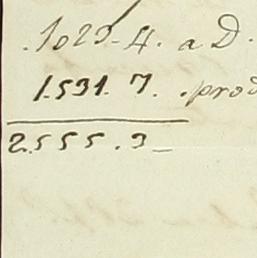 .1023-4. a D.
1.531. 7. .prod
2.555.3_